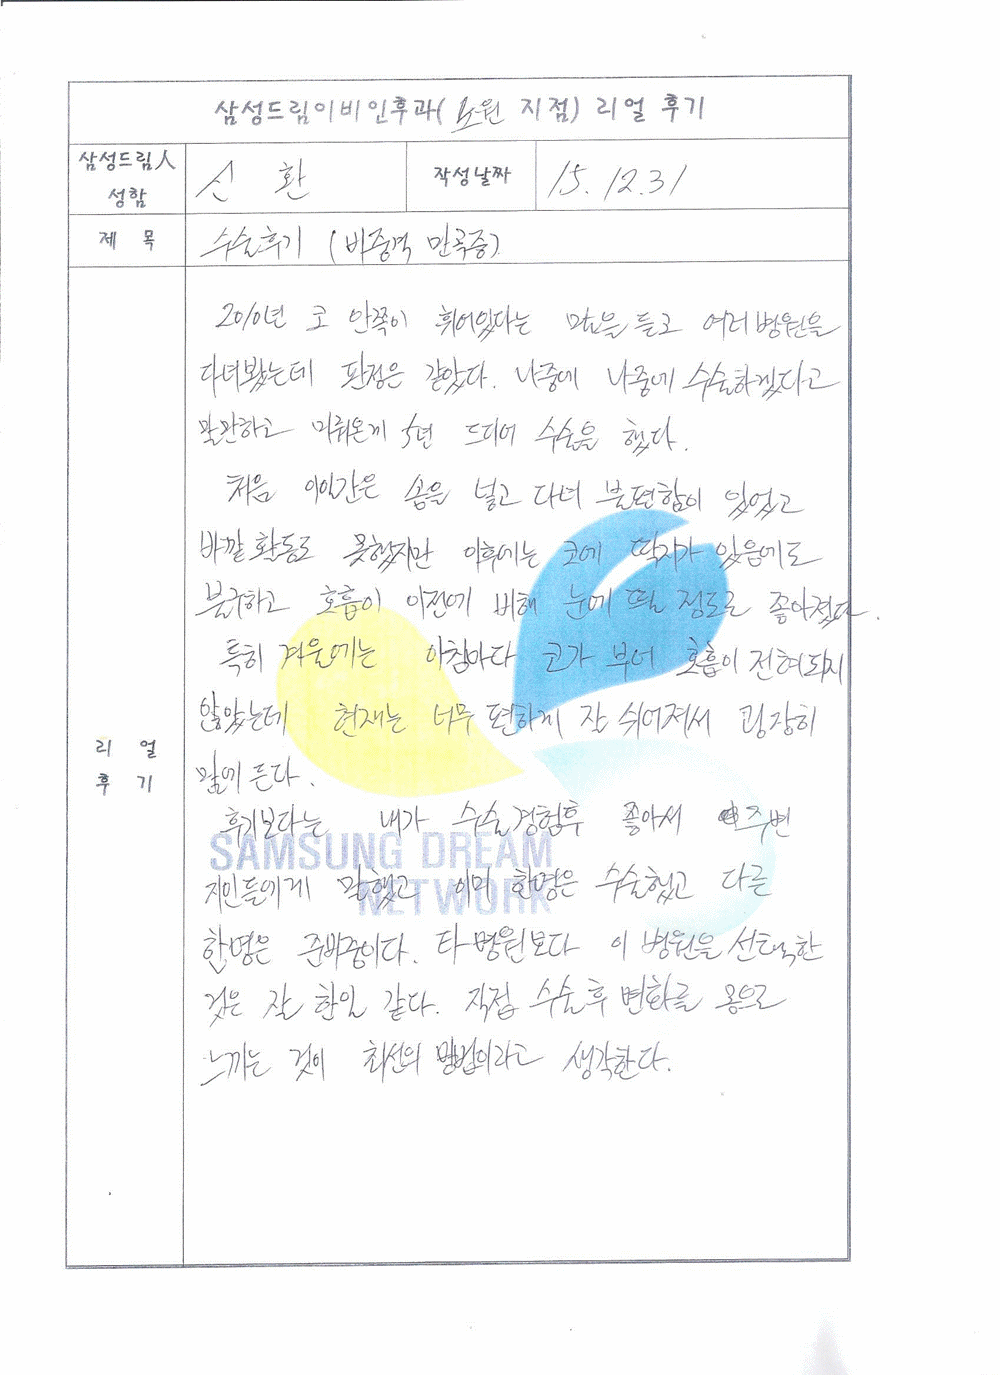 삼성드림이비인후과( 노원 지점) 리얼 후기
삼성드림人 성함
신 환
작성날짜
15. 12. 31
제 목
수술후기 (비중격 만곡증)
리 얼 후 기
2010년 코 안쪽이 휘어있다는 말을 듣고 여러병원을
다녀봤는데 판정은 같았다. 나중에 나중에 수술하겠다고
말만하고 미뤄온게 5년 드디어 수술을 했다.
처음 이일간은 솜을 넣고 다녀 불편함이 있었고
바깥 활동도 못했지만 이후에는 코에 딱지가 있음에도
불구하고 호흡이 이전에 비해 눈에 띌 정도로 좋아졌다.
특히 겨울에는 아침마다 코가 부어 호흡이 전혀되지
않았는데 현재는 너무 편하게 잘 쉬어져서 굉장히
맘에 든다.
후기보다는 내가 수술경험후 좋아서 주변
지인들에게 말했고 이미 한명은 수술했고 다른
한명은 준비중이다. 타 병원보다 이 병원을 선택한
것은 잘 한일 같다. 직접 수술후 변화를 몸으로
느끼는 것이 최선의 방법이라고 생각한다.
SAMSUNG DREAM
NETWORK